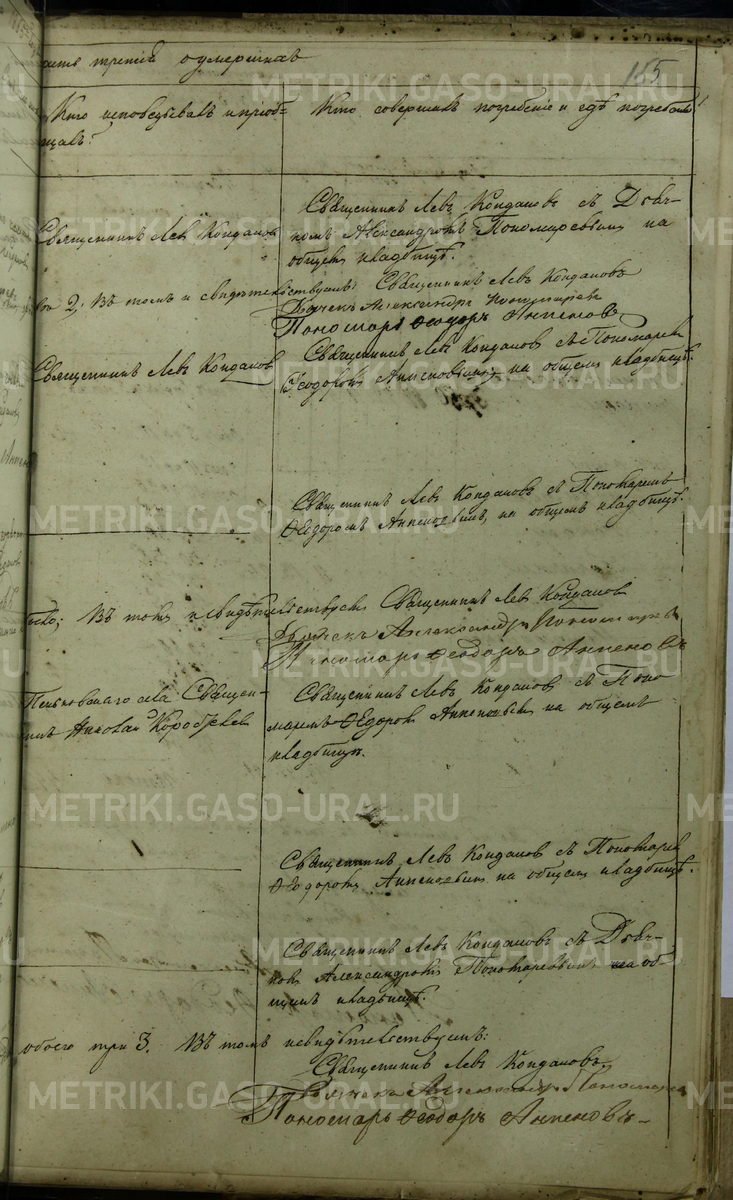 часть третия о умершихъ
155
Кто исповедывалъ и приоб-
щалъ?
Кто совершалъ погребение и где погребены
Священникъ Левъ Кондаковъ
Священникъ Левъ Кондаковъ съ Дьяч-
комъ Александромъ Пономаревымъ на
общемъ кладбищѣ.
2; Въ томъ и свидѣтельствуемъ: Священникъ Левъ Кондаковъ
Дьячекъ Александръ Пономаревъ
Пономарь Ѳеодоръ Анпеновъ
Священникъ Левъ Кондаковъ
Священникъ Левъ Кондаковъ съ Пономаремъ
Ѳеодоромъ Анпеновымъ на общемъ кладбищѣ.
Священникъ Левъ Кондаковъ съ Пономаремъ
Ѳедоромъ Анпеновымъ, на общемъ кладбищѣ.
Въ томъ и свидѣтельствуемъ Священникъ Левъ Кондаковъ
Дьячекъ Александръ Пономаревъ
Пономарь Ѳеодоръ Анпеновъ
села Священ-
никъ Николай Коробѣевъ
Священникъ Левъ Кондаковъ съ Поно-
маремъ Ѳедоромъ Анпеновымъ на общемъ
кладбищѣ.
Священникъ Левъ Кондаковъ съ Пономаремъ
Ѳеодоромъ Анпеновымъ на общемъ кладбищѣ.
Священникъ Левъ Кондаковъ съ Дьяч-
комъ Александромъ Пономаревымъ на об-
щемъ кладбищѣ.
обоего три 3. Въ томъ и свидѣтельствуемъ:
Священникъ Левъ Кондаковъ
Дьячекъ Александръ Пономаревъ
Пономарь Ѳеодоръ Анпеновъ
METRIKI.GASO-URAL.RU